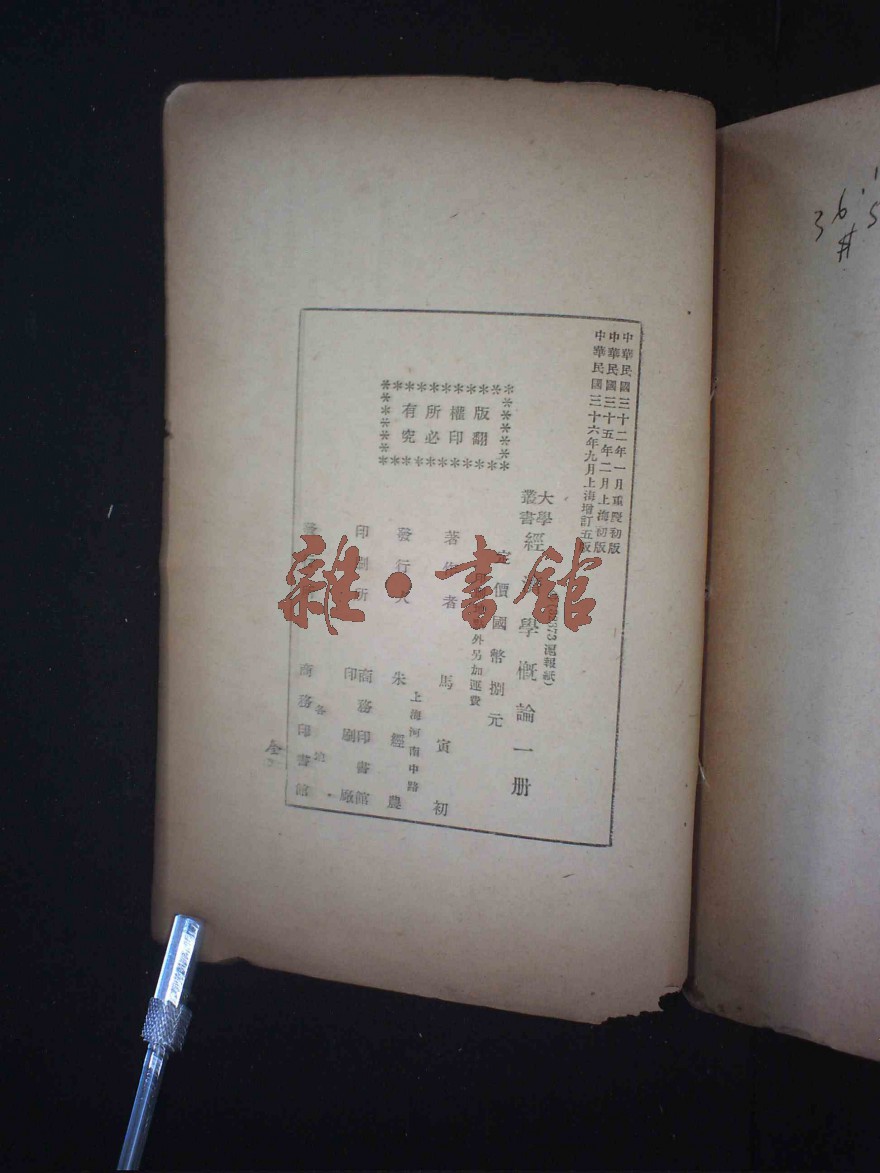 中華民國三十二年一月重慶初版
中華民國三十五年二月上海初版
中華民國三十六年九月上海增訂五版
大學
叢書
經濟學概論一册
滬報紙)
定價國幣捌元
外另加運費
版權所有
翻印必究
著作者
馬寅初
發行人
朱經農
上海河南中路
印刷所
商務印書館
印刷廠
各地
商務印書館
雜·書館
36.